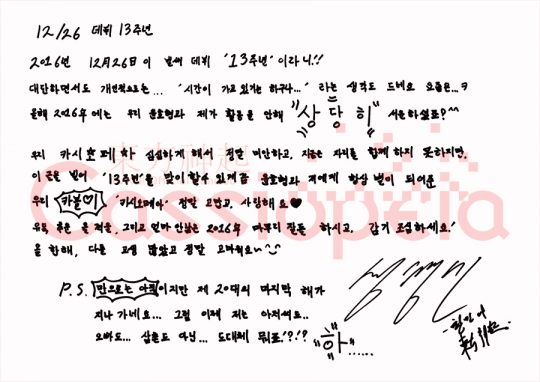 12/26 데뷔 13주년
2016년 12월26일이 벌써 데뷔 '13주년' 이라니!!
대단하면서도 개인적으로는... '시간이 가고 있기는 하구나...' 라는 생각도 드네요 요즘은...ㅋ
올해 2016년에는 우리 윤호형과 제가 활동을 안해 "상당히" 서운하셨죠?^^
우리 카시오페아 심심하게 해서 정말 미안하고, 지금은 자리를 함께 하지 못하지만,
이 글을 빌어 '13주년'을 맞이할수 있게끔 윤호형과 저에게 항상 별이 되어준
우리 카블♡기 '카시오페아' 정말 고맙고, 사랑해요♥
유독 추운 올 겨울, 그리고 얼마 안남은 2016년 마무리 잘들 하시고, 감기 조심하세요!
올 한해, 다들 고생 많았고 정말 고마워요~^^
P.S. 만으로는 아직이지만 제 20대의 마지막 해가
지나 가네요... 그럼 이제 저는 아저씨요..
오빠도... 삼촌도 아닌... 도대체 뭐죠?!?! "하"......
東方神起
Cassiopeia